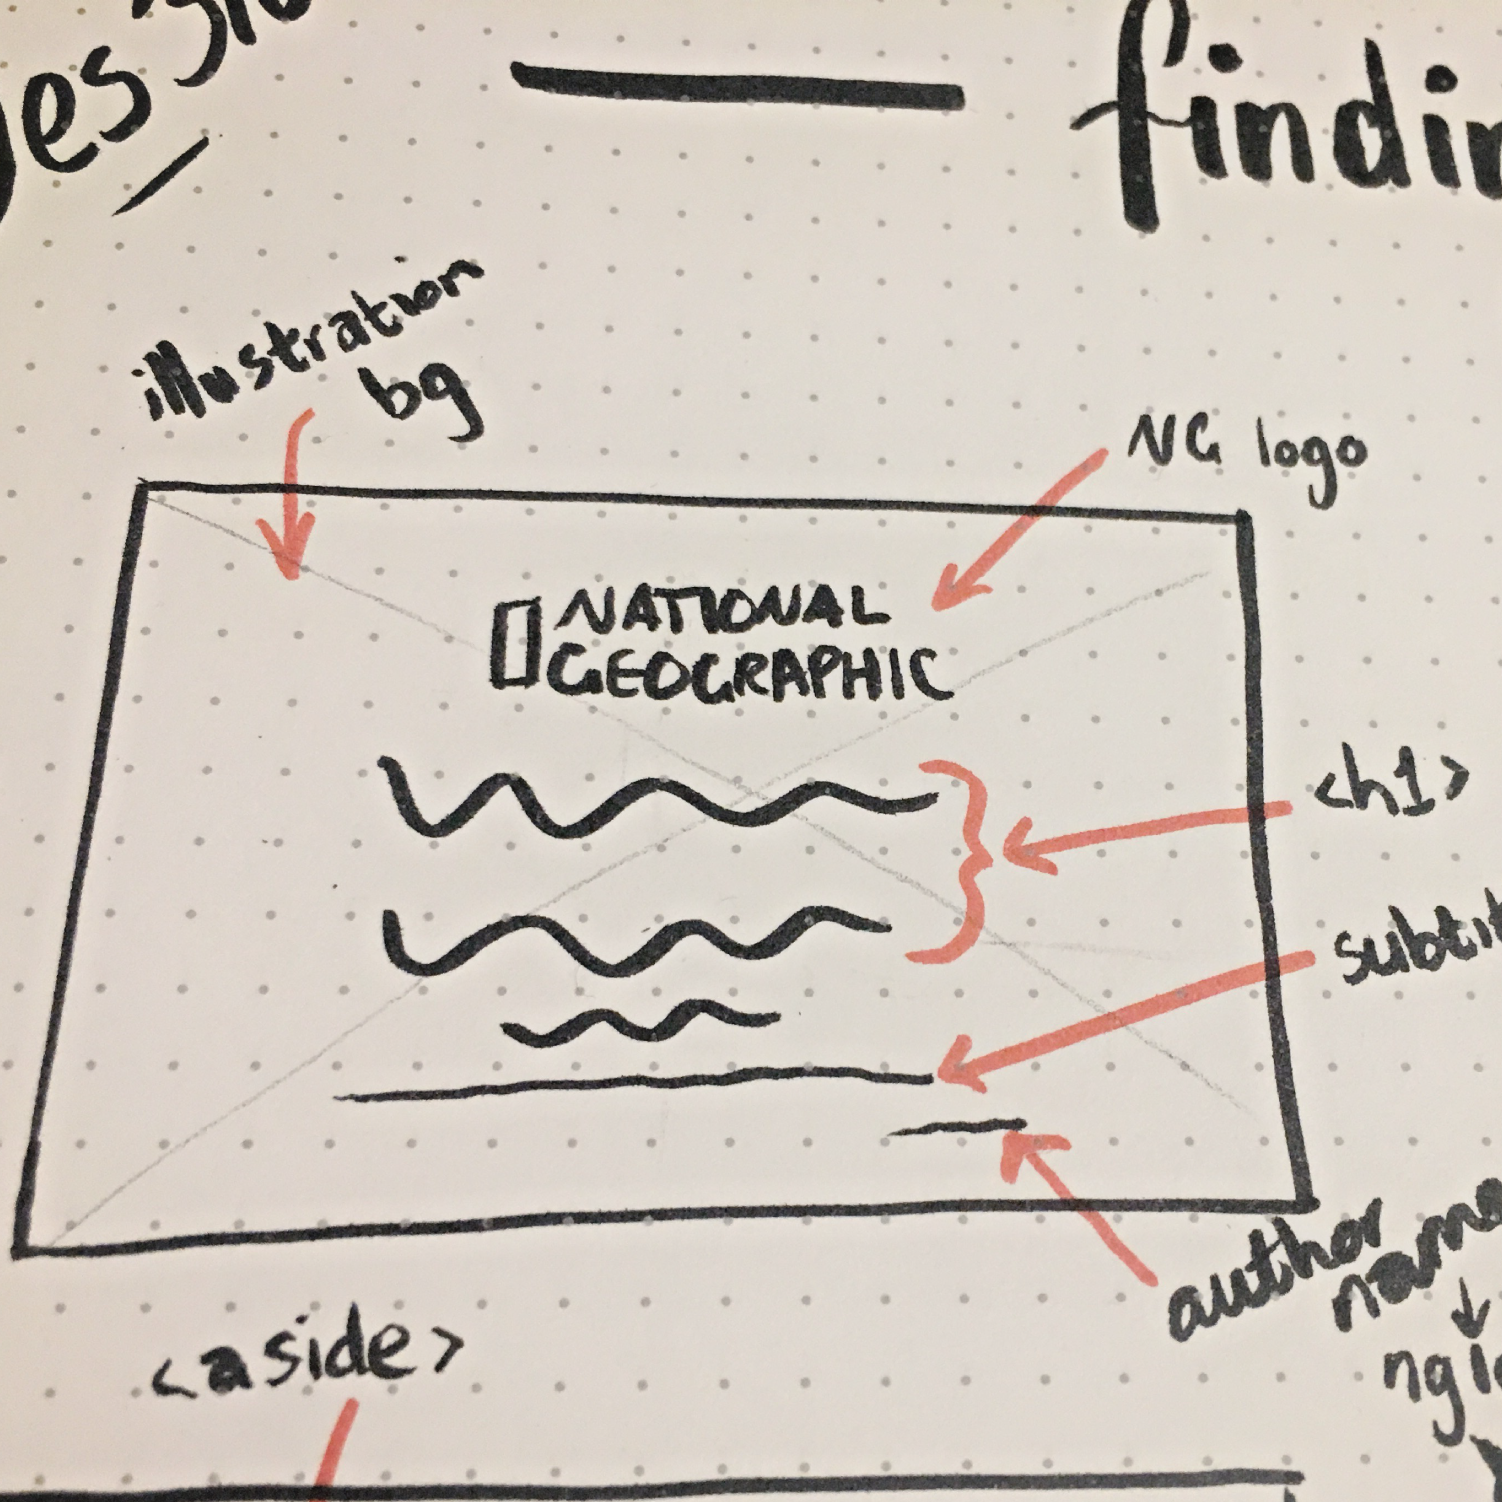 findin
illustration
bg
NG logo
NATIONAL
GEOGRAPHIC
<h1>
subtit
author
name
<aside>